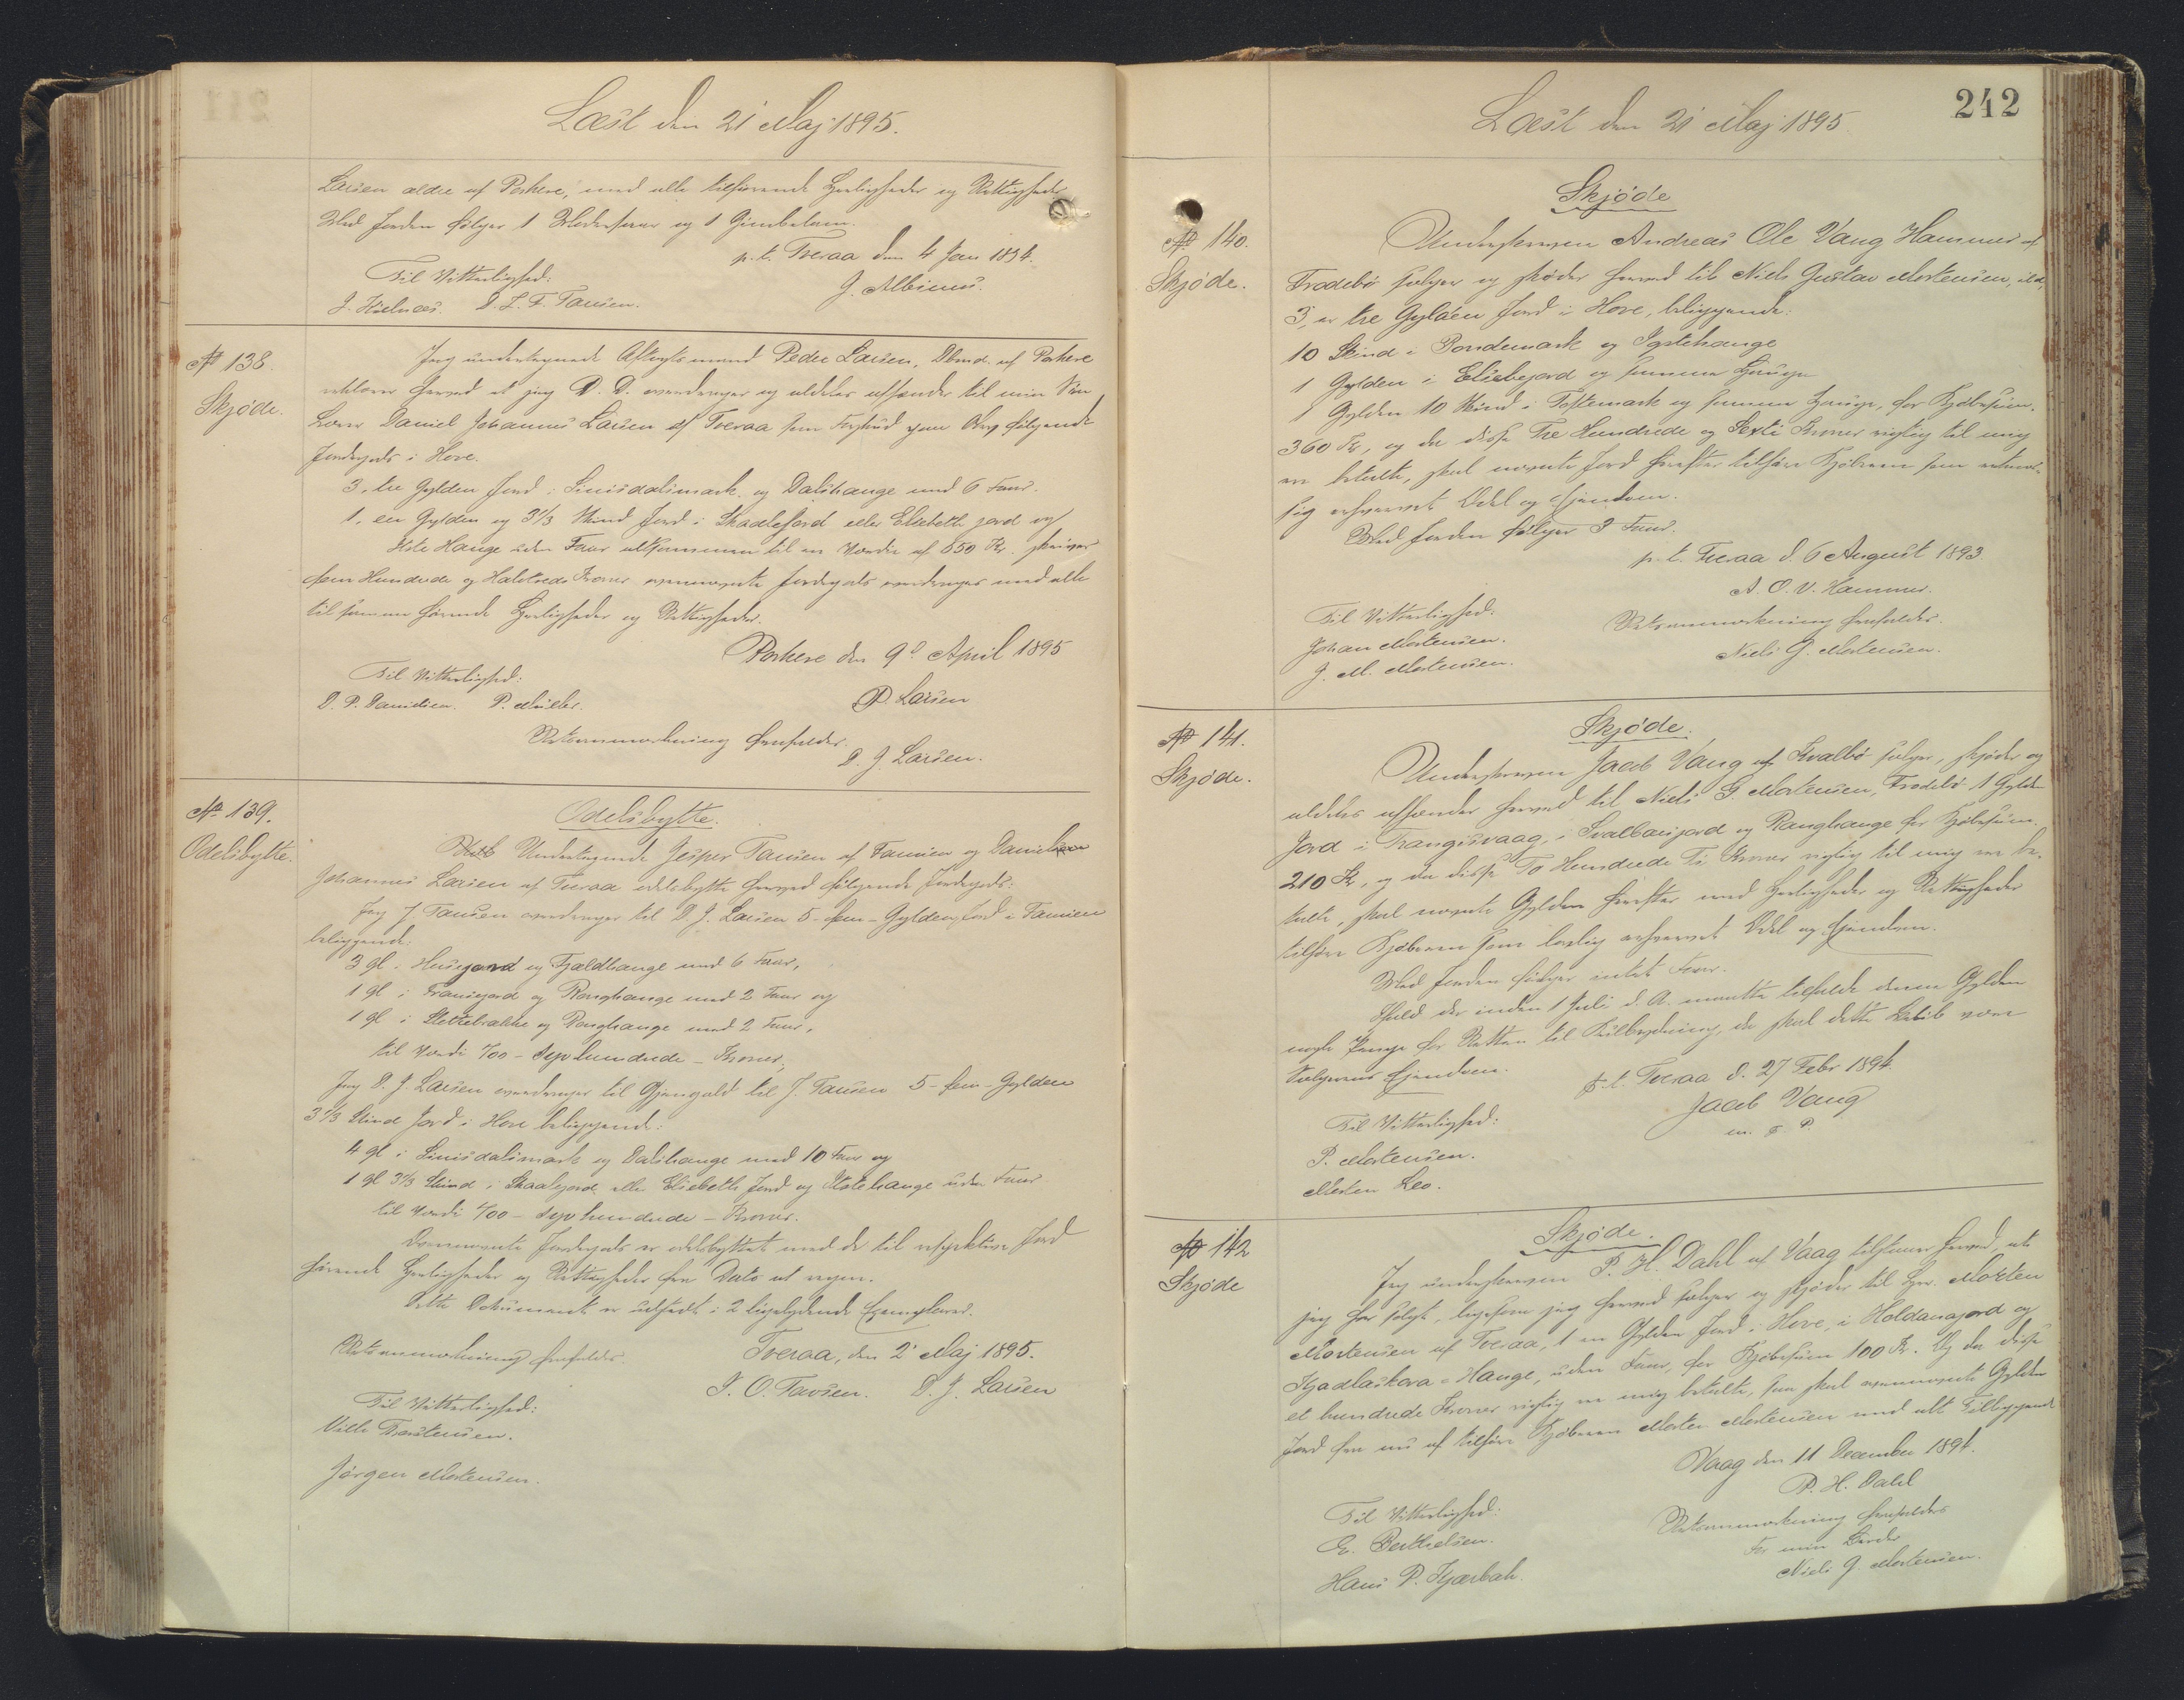 Læst den 21' Maj 1895.
Larsen ældre af Porkere, med alle tilhørende Herligheder og Rettigheder
Med Jorden følger 1 Moderfaar og 1 Gimbelam.
p. t. Tveraa den 4 Jan 1894.
Til Vitterlighed:
J. Albinus.
J. Kjelnæs. D. L. F. Tausen.
No 138.
Skjøde.
Jeg undertegnede Aftægtsmand Peder Larsen, Dbmd. af Porkere
erklærer herved at jeg D. D. overdrager og aldeles afhænder til min Søn
Daniel Johannes Larsen af Tveraa som Forskud paa Arv følgende
Jordegods i Hove.
3, tre Gylden Jord i Simisdalsmark og Dalshauge med 6 Faar.
1, en Gylden og 3 1/3 Skind Jord i Skaalefjord eller Elsebeth jord og
Hauge uden Faar alt sammen til en Værdi af 550 Kr. skriver
fem Hundrede og Halvtreds Kroner ovennævnte Jordegods overdrages med alle
til samme hørende Herligheder og Rettigheder.
Porkere den 9d April 1895
Til Vitterlighed:
D. P. Danielsen. P. Müller.
P. Larsen
Retsanmærkning frafaldes.
D. J. Larsen.
No 139.
Odelsbytte.
Odelsbytte.
Undertegnede Jesper Tausen af Famien og Daniel
Johannes Larsen af Tveraa odelsbytte herved følgende Jordegods:
Jeg J. Tausen overdrager til D. J. Larsen 5 - fem - Gylden Jord i Famien
beliggende:
3 gl. i Heimegaard og Fjældhauge med 6 Faar,
1 gl i Fransejord og Ranghauge med 2 Faar og
1 gl i Slettebrakke og Ranghauge med 2 Faar,
til Værdi 700 - syv hundrede - Kroner,
Jeg D. J. Larsen overdrager til Gjengæld til J. Tausen 5 - fem - Gylden
3 1/3 Skind Jord i Hove beliggende:
4 gl i Simisdalsmark og Dalshauge med 10 Faar og
1 gl 3 1/3 Skind i Skaalejord eller Elsebeth Jord og hauge uden Faar
til Værdi 700 - syv hundrede - Kroner.
Ovennævnte Jordegods er odelsbyttet med de til respektive Jord
hørende Herligheder og Rettigheder fra Dato at regne.
Dette Dokument er udstedt i 2 ligelydende Exemplarer.
Retsanmærkning frafaldes.
Tveraa, den 2' Maj 1895.
J. O. Tausen. D. J. Larsen
Til Vitterlighed:
Thorstensen.
Jørgen Mortensen.
242
Læst den 21' Maj 1895
Skjøde
No 140.
Skjøde.
Underskreven Andreas Ole Vang Hammer af
Frodebø sælger og skøder herved til Niels Gustav Mortensen, ibd,
3, er tre Gylden Jord i Hove, beliggende:
10 Skind i Bondemark og hauge
1 Gylden i Elsebejord og samme Hauge
1 Gylden 10 Skind i Toftemark og samme Hauge, for Kjøbesum.
360 Kr, og da disse Tre Hundrede og Sexti Kroner rigtig til mig
er betalte, skal nævnte Jord herefter tilhøre Kjøberen som
sig erhvervet Odel og Ejendom.
Med Jorden følger 3 Faar.
p. t. Tveraa d. 6 August 1893.
A. O. V. Hammer.
Til Vitterlighed:
Johan Mortensen.
J. M. Mortensen.
Retsanmærkning frafaldes.
Niels G. Mortensen.
No 141.
Skjøde.
Skjøde.
Underskreven Jacob Vang af Kvalbø sælger, skjøder og
aldeles afhænder herved til Niels G Mortensen, Frodebø 1 Gylden
Jord i Trangisvaag, i Svalbarsjord og Ranghauge for Kjøbesum.
210 Kr, og da disse To Hundrede Ti Kroner rigtig til mig ere be-
talte, skal nævnte Gylden herefter med Herligheder og Rettigheder
tilhøre Kjøberen som lovlig erhvervet Odel og Ejendom.
Med Jorden følger intet Faar.
Skuld der inden 1 Juli d. A. maatte tilfalde denne Gylden
nogle Penge for Retten til Kulbrydning, da skal dette Beløb være
Sælgerens Ejendom.
p. t. Tveraa d. 27 Febr 1894.
Jacob Vang
m. f. P.
Til Vitterlighed:
P. Mortensen.
Morten Leo.
No 142
Skjøde
Skjøde.
Jeg underskreven P. H. Dahl af Vaag tilstaar herved, at
jeg har solgt, ligesom jeg herved sælger og skjøder til Hr. Morten
Mortensen af Tveraa, 1 en Gylden Jord i Hove, i Holdanajord og
Kjadlaskora = Hauge, uden Faar, for Kjøbesum 100 Kr. Og da disse
et hundrede Kroner rigtig er mig betalte, saa skal ovennævnte Gylden
Jord fra nu af tilhøre Kjøberen Morten Mortensen med alt Tilliggende
Vaag den 11 December 1894.
P. H. Dahl
Til Vitterlighed:
E. Berthelsen.
Hans P. Kjærbæk.
Retsanmærkning frafaldes
For min Broder
Niels G. Mortensen.